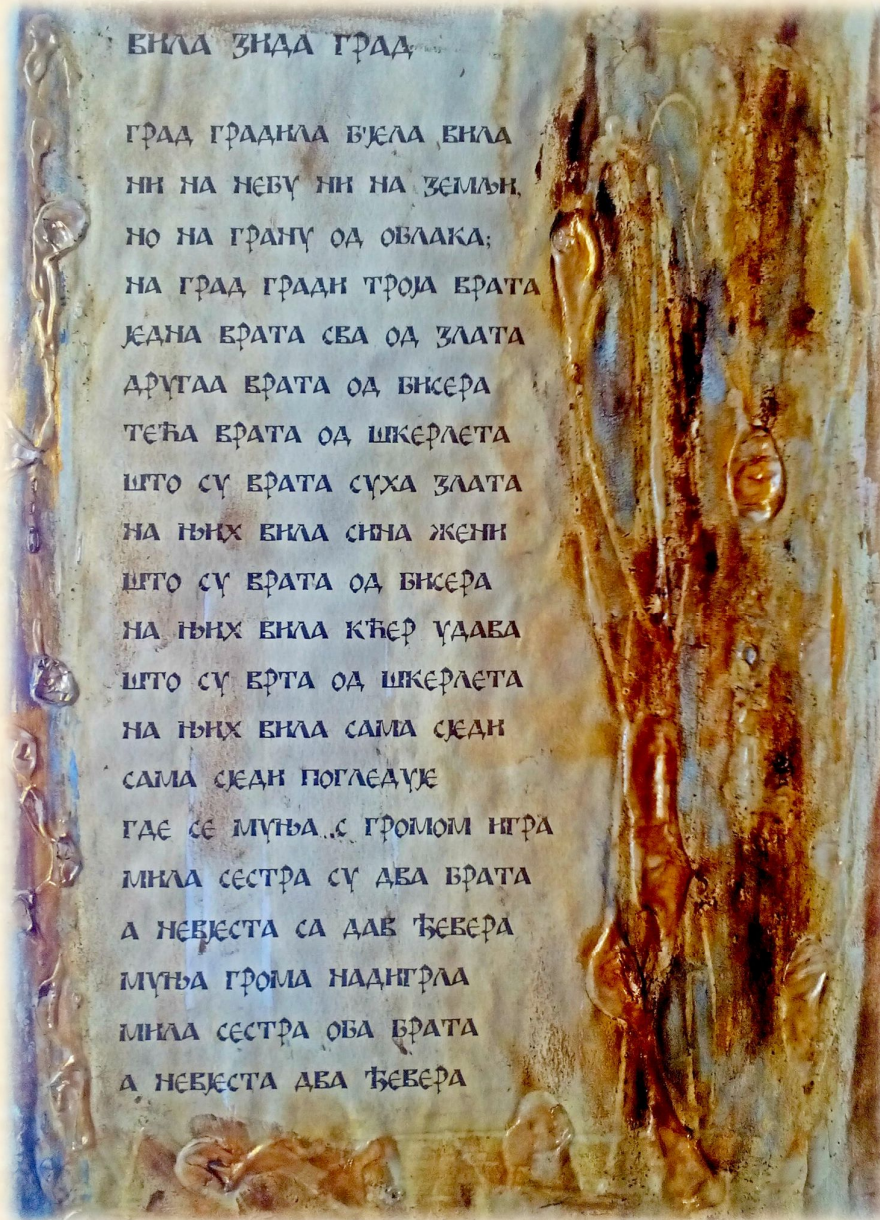 ВИЛА ЗИДА ГРАД
ГРАД ГРАДИЛА БЈЕЛА ВИЛА
НИ НА НЕБУ НИ НА ЗЕМЉИ,
НО НА ГРАНУ ОД ОБЛАКА;
НА ГРАД ГРАДИ ТРОЈА ВРАТА
ЈЕДНА ВРАТА СВА ОД ЗЛАТА
ДРУГАА ВРАТА ОД БИСЕРА
ТЕЋА ВРАТА ОД ШКЕРЛЕТА
ШТО СУ ВРАТА СУХА ЗЛАТА
НА ЊИХ ВИЛА СИНА ЖЕНИ
ШТО СУ ВРАТА ОД БИСЕРА
НА ЊИХ ВИЛА КЋЕР УДАВА
ШТО СУ ВРТА ОД ШКЕРЛЕТА
НА ЊИХ ВИЛА САМА СЈЕДИ
САМА СЈЕДИ ПОГЛЕДУЈЕ
ГДЕ СЕ МУЊА..С ГРОМОМ ИГРА
МИЛА СЕСТРА СУ ДВА БРАТА
А НЕВЈЕСТА СА ДАВ ЂЕВЕРА
МУЊА ГРОМА НАДИГРЛА
МИЛА СЕСТРА ОБА БРАТА
А НЕВЈЕСТА ДВА ЂЕВЕРА